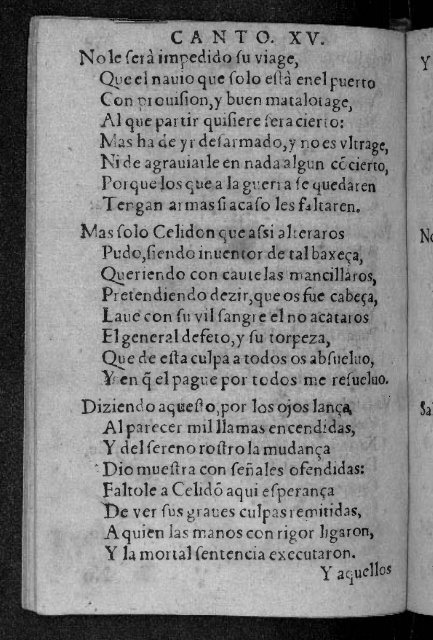 CANTO. XV.
No le serà impedido su viage,
Que el nauio que solo està enel puerto
Con prouision, y buen matalotage,
Al que partir quisiere sera cierto:
Mas ha de yr desarmado, y no es vltrage,
Ni de agrauiarle en nada algun cõcierto,
Porque los que a la guerra se quedaren
Tengan armas si acaso les faltaren.
Mas solo Celidon que assi alteraros
Pudo, siendo inuentor de tal baxeça,
Queriendo con cautelas mancillaros,
Pretendiendo dezir, que os fue cabeça,
Laue con su vil sangre el no acataros
El general defeto, y su torpeza,
Que de esta culpa a todos os absueluo,
Y en q̃ el pague por todos me resueluo.
Diziendo aquesto, por los ojos lança
Al parecer mil llamas encendidas,
Y del sereno rostro la mudança
Dio muestra con señales ofendidas:
Faltole a Celidõ aqui esperança
De ver sus graues culpas remitidas,
A quien las manos con rigor ligaron,
Y la mortal sentencia executaron.
Y aquellos
Y
No
Sa